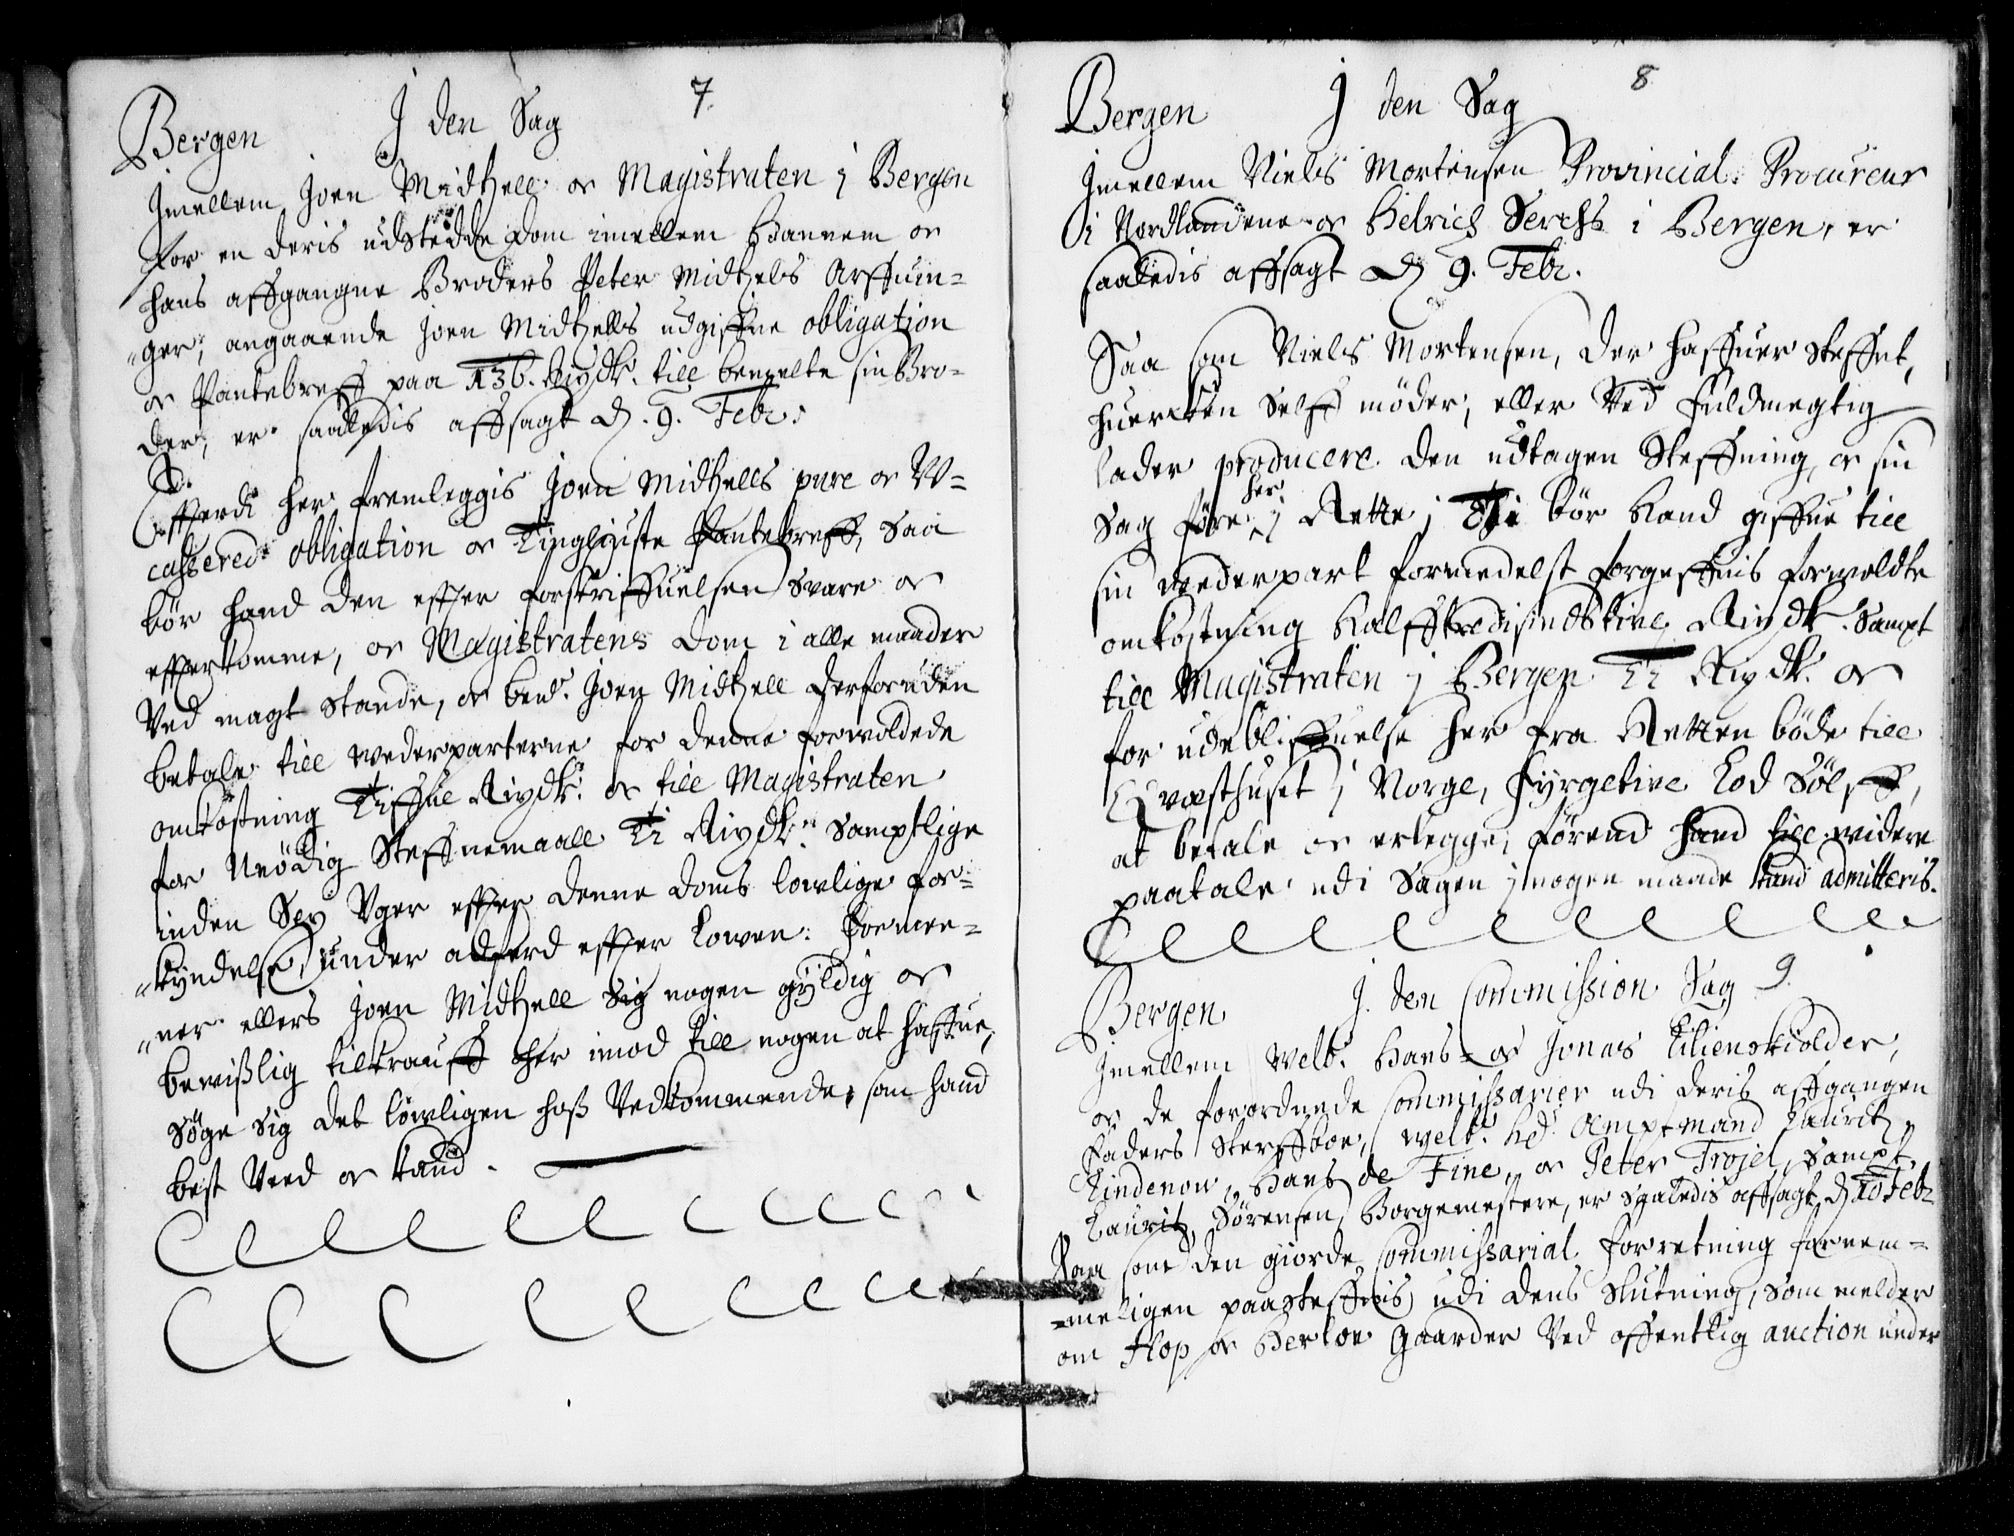 7.
Bergen J den Sag
Jmellem Joen Midthell oc Magistraten j Bergen
for en deris udstedde dom imellem Hannem oc
hans affgangne Broders Peter Midthels Arffuin-
"ger, angaaende Joen Midthells udgiffne obligation
oc Pantebreff paa 136. Rixdlr. till bemelte sin Bro-
der, er saaledis affsagt d. 9. Febr:
Efftterdi her fremleggis Joen Midthells pure oc V-
casserede obligation oc Tingliuste Pantebreff, Saa
bør hand den effter forskriffuelsen Svare oc
effterkomme, oc Magistratens dom i alle maader
Ved magt stande, oc bemt. Joen Midthell derforuden
betale till wederparterne for denne forvoldede
omkostning Tiffue Rixdlr. oc till Magistraten
for Unödig Steffnemaall Ti Rixdlr. Samptlige
inden Sex Uger effter denne doms lowlige for-
"kyndelse, under adferd effter Lowen: Formee-
"ner ellers Joen Midthell Sig nogen gyldig oc
bewißlig tilkrauff her imod till nogen at haffue,
Søge Sig det lowligen hoß Vedkommende, som hand
best Veed oc kand.
8
Bergen J den Sag
Jmellem Niels Mortensen Provincial Procureur
i Nordlandene oc Helrich Serchs i Bergen, er
saaledis affsagt d. 9. Febr.
Saa som Niels Mortensen, der haffuer steffnt,
huercken Self møder, eller Ved Fuldmegtig
lader producere den udtagen Steffning, oc sin
Sag føre her j Rette; Thi bør Hand giffue till
sin wederpart formedelst forgeffuis forvoldte
omkostning Halfftredisindstive Rixdlr. Sampt
till Magistraten j Bergen Ti Rixdlr. oc
for udebliffuelse her fra Retten bøde till
Qvæsthuset j Norge, Fyrgetive Lod Sølff,
at betale oc erlegge, førend hand till widere
paatale udi Sagen j nogen maade kand admitteris.
9.
Bergen J den Commission Sag
Jmellem Welb. Hans- oc Jonas Lilienskiolder,
oc de forordnede Commissarier udi deris affgangen
Faders Sterffboe, Welb. Hr. Amptmand Lauritz
Lindenow, Hans de Fine, oc Peter Trojel, Sampt
Lauritz Sørensen, Borgemestere, er Saaledis affsagt d. 10 Febr
Saa som den giorde Commissarial forretning fornem-
=meligen paasteffnis udi dens Slutning, Som melder
om Hop oc Herloe Gaarder Ved offentlig auction under